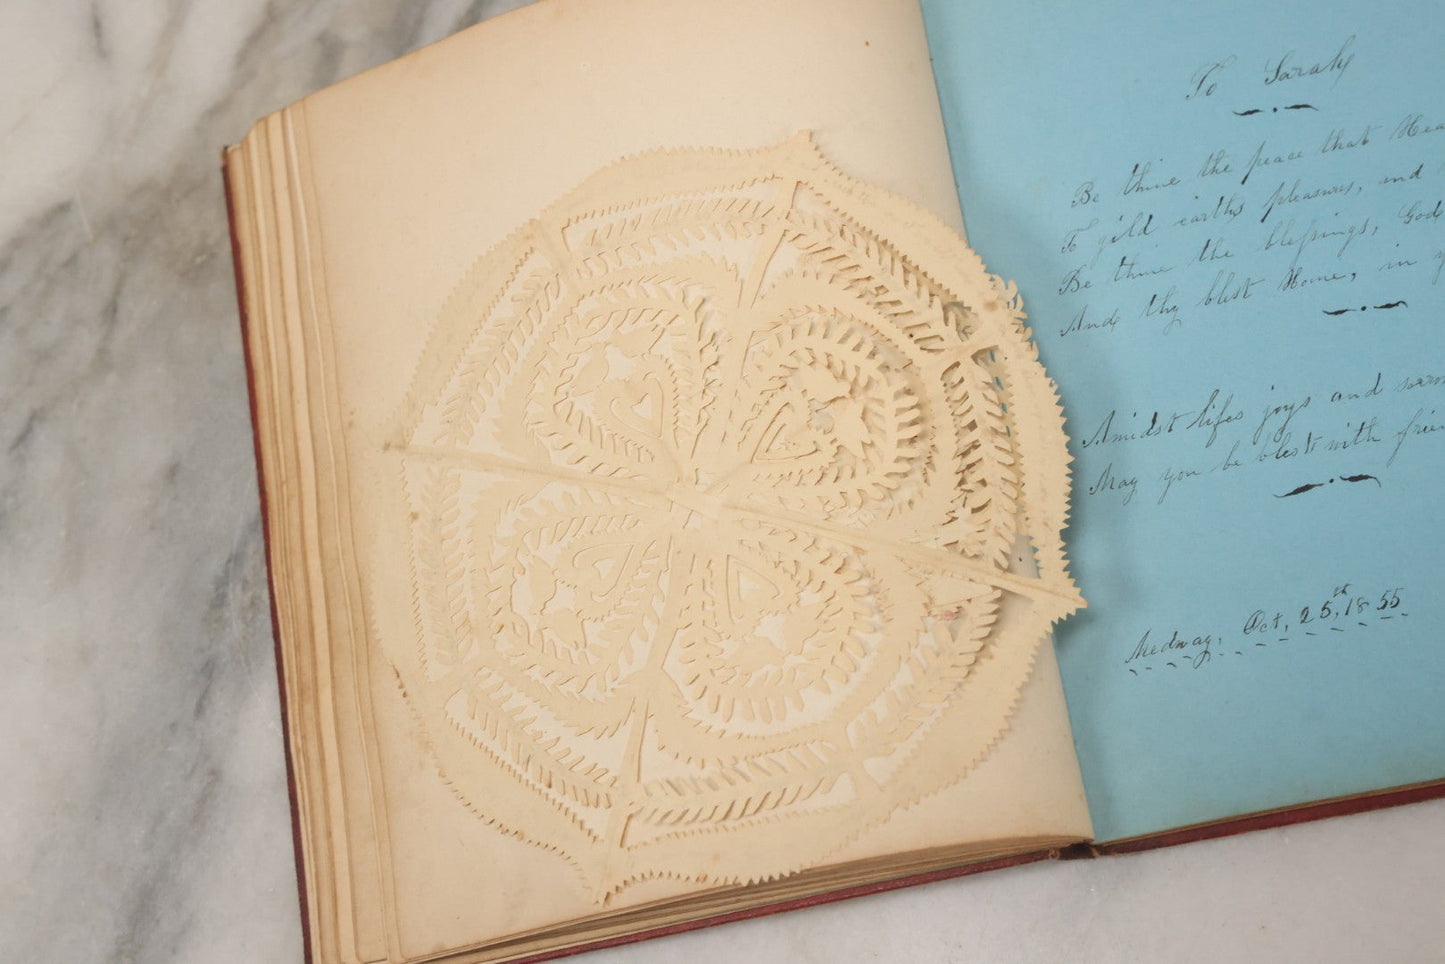 To Sarah
Be thine the peace that Hea
To gild earths pleasures, and
Be thine the blessings, God
And thy blest Home, in
Amidst lifes joys and sorro
May you be blest with frien
Medway, Oct, 25st, 1855